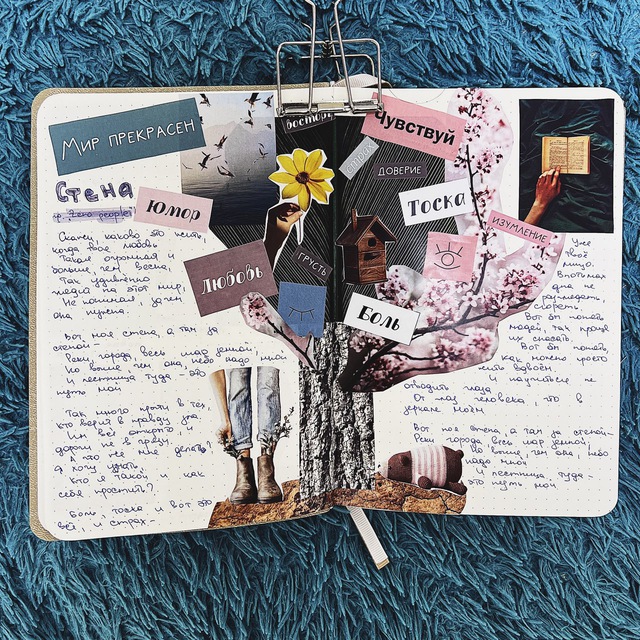 Мир прекрасен
Стена
Zero people
Скажи, каково это жить,
когда твоя любовь
Такая огромная и
больше, чем весна.
Так удивлённо
глядя на этот мир,
Не понимая, зачем
она нужна.
Вот, моя стена, а там за
стеной -
Реки, города, весь шар земной,
Но выше, чем она, небо надо мной
и лестница туда - это
путь мой
Так много правды в тех,
кто верит в правду зла,
Им всё открыто -
даром не в грёзу.
А что же мне делать?
Я хочу узнать,
кто я такой и как
себя простить?
Боль, тоска и вот это
всё, и страх-
восторг
Чувствуй
страх
доверие
Тоска
Юмор
изумление
Любовь
грусть
Боль
Уже
твоё
лицо.
Вполтьмах
дна не
разглядеть,
сгореть
Вот бы понять
людей, там проще
и спасать.
Вот бы понять,
как можно просто
жить вдвоём.
и научиться не
отводить глаза
От глаз человека, что в
зеркале моём
Вот моя стена, а там за стеной-
Реки, города, весь шар земной,
Но выше, чем она, небо
надо мной
и лестница туда -
это путь мой